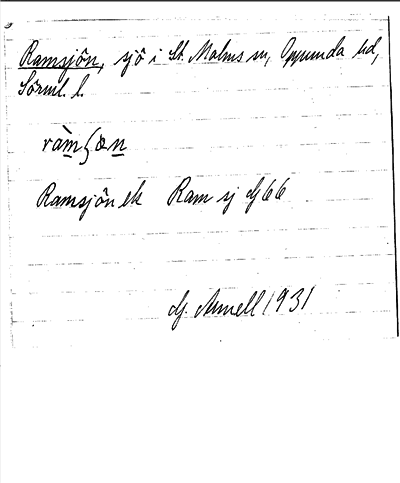 Ramsjön, sjö i St. Malms sn, Oppunda hd,
Sörml. l.
ràmʃœn
Ramsjön ek Ram sj dj 66
dj. Arnell 1931